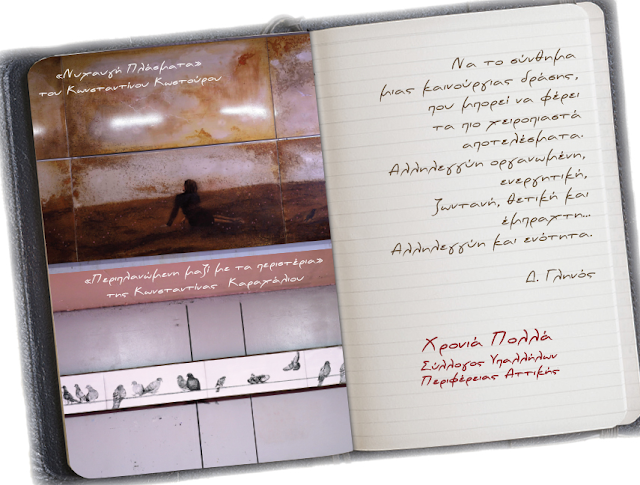 «Νυχαυγή Πλάσματα»
του Κωνσταντίνου Κωστούρου
«Περιπλανώμενη μαζί με τα περιστέρια»
της Κωνσταντίνας Καραχάλιου
Να το σύνθημα
μιας καινούργιας δράσης,
που μπορεί να φέρει
τα πιο χειροπιαστά
αποτελέσματα.
Αλληλεγγύη οργανωμένη,
ενεργητική,
ζωντανή, θετική και
έμπραχτη...
Αλληλεγγύη και ενότητα.
Δ. Γληνός
Χρονιά Πολλά
Σύλλογος Υπαλλήλων
Περιφέρειας Αττικής